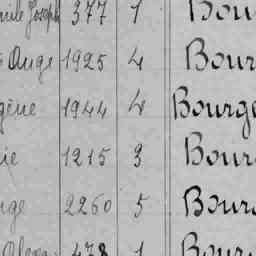 mile Joseph 377 1 Bou
Ange 1925 4 Bour
gène 1944 4 Bourge
ie 1215 3 Bour
nge 2260 5 Bour
478 1 Bour